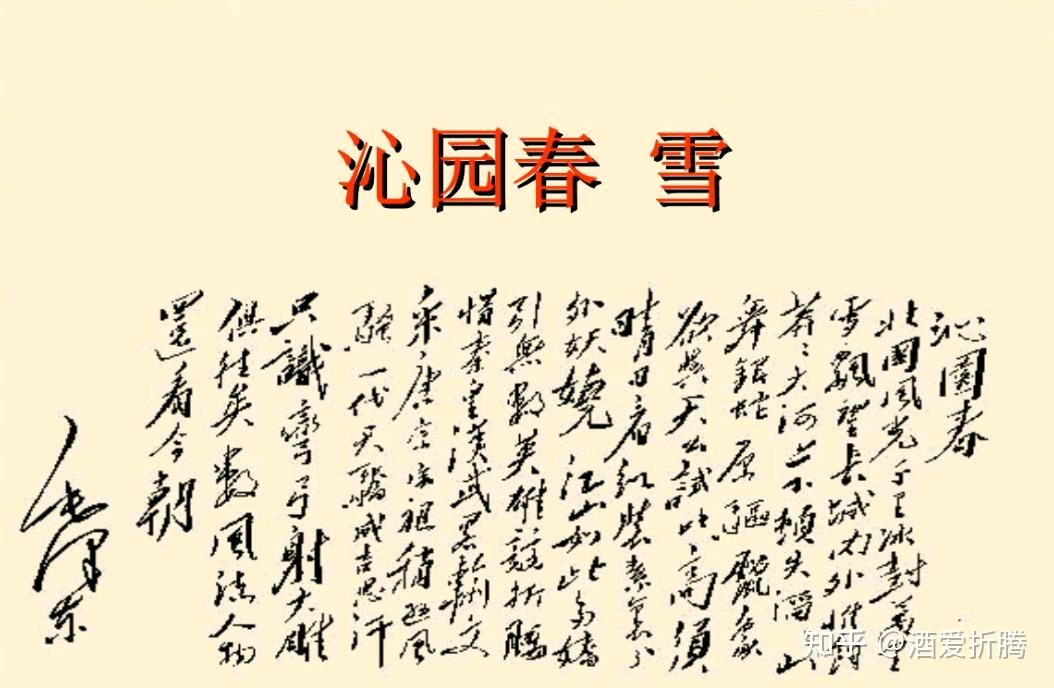 沁园春 雪
沁園春
北國風光千里冰封萬里
雪飄望長城内外惟餘
莽〻大河上下頓失滔〻山
舞銀蛇原驅臘象
欲與天公試比高須
晴日看紅裝素裹分
外妖嬈江山如此多嬌
引無數英雄競折腰
惜秦皇漢武畧輸文
采唐宗宋祖稍遜風
騷一代天驕成吉思汗
只識彎弓射大雕
俱往矣數風流人物
還看今朝
毛澤東
知乎 @酒爱折腾